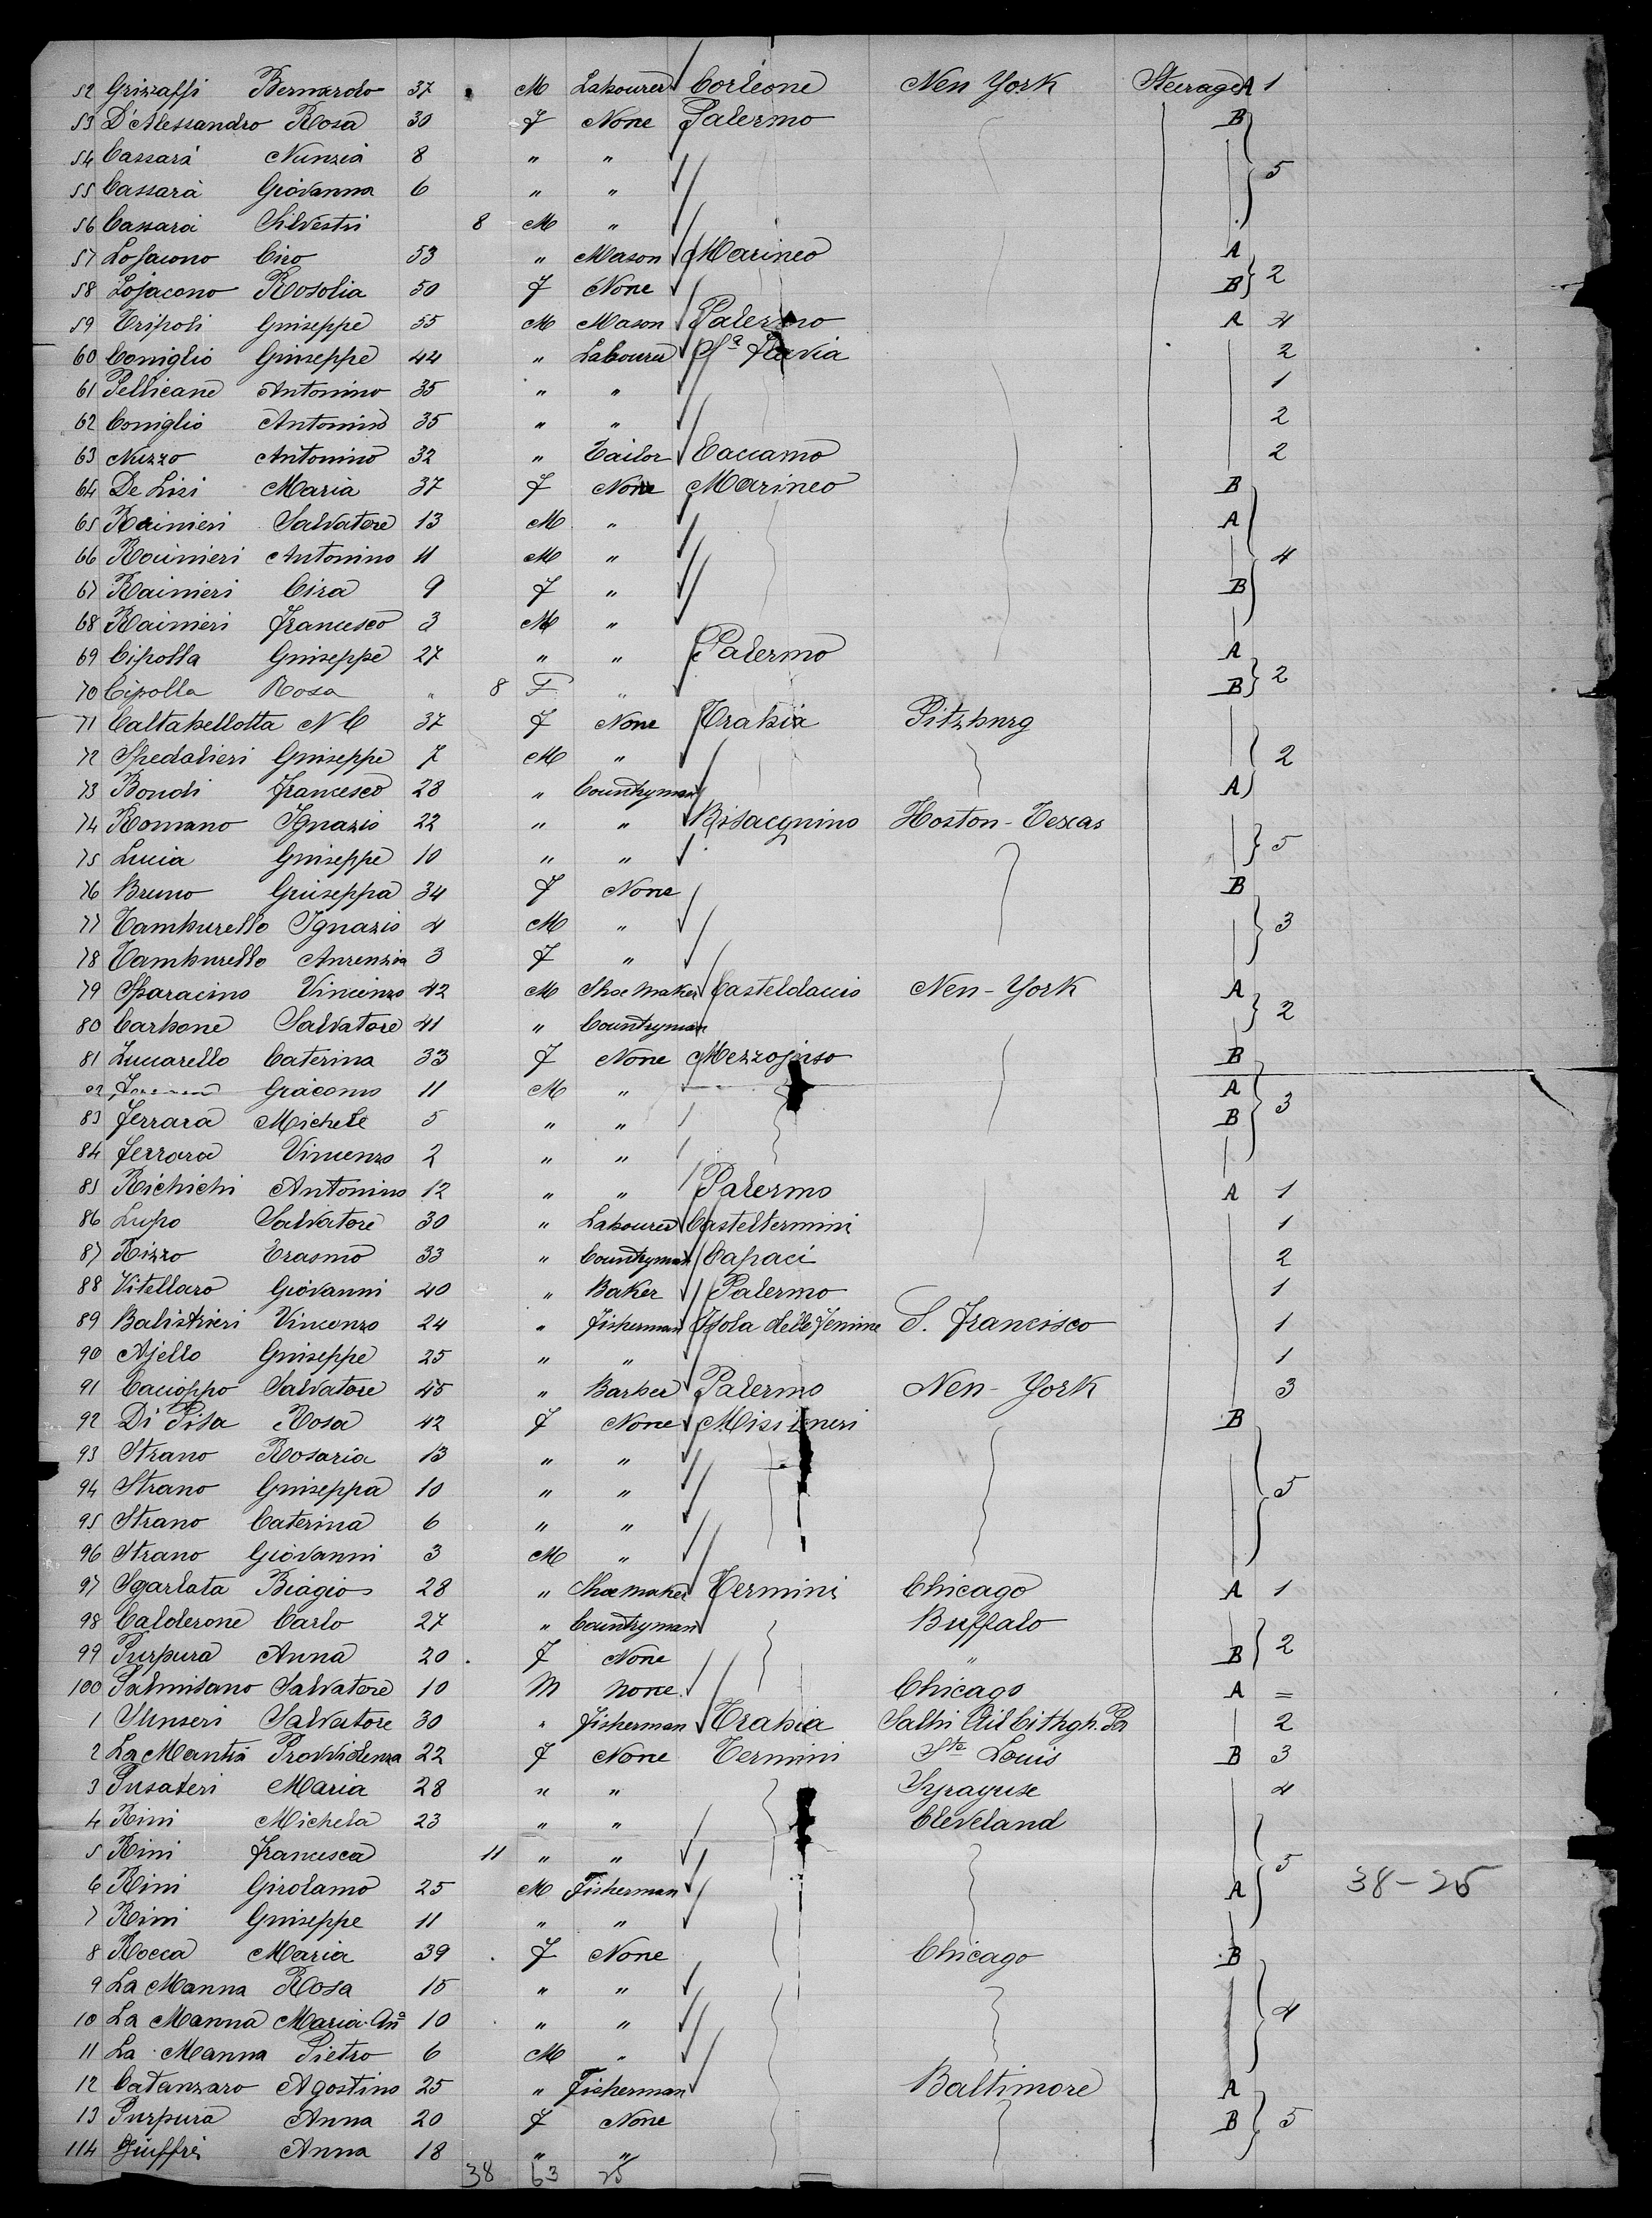 52 Grizzaffi Bernardo 37 M Labourer Corleone New York Steerage A 1
53 D'Alessandro Rosa 30 F None Palermo B
54 Cassarà Nunzia 8 " " 5
55 Cassarà Giovanna 6 " "
56 Cassarà Silvestri 8 M "
57 Lojacono Ciro 53 " Mason Marineo A
58 Lojacono Rosolia 50 F None B 2
59 Tripoli Guiseppe 55 M Mason Palermo A 4
60 Coniglio Guiseppe 44 " Labourer Sª Flavia 2
61 Pellicane Antonino 35 " " 1
62 Coniglio Antonino 35 " " 2
63 Nuzzo Antonino 32 " Tailor Caccamo 2
64 De Lisi Maria 37 F None Marineo B
65 Rainieri Salvatore 13 M " A
66 Rainieri Antonino 11 M " 4
67 Rainieri Cira 9 F " B
68 Rainieri Francesco 3 M "
69 Cipolla Guiseppe 27 " " Palermo A
70 Cipolla Rosa " 8 F " B 2
71 Caltabellotta N C 37 F None Trabia Pitzburg
72 Spedalieri Guiseppe 7 M " 2
73 Bondi Francesco 28 " Countryman A
74 Romano Ignazio 22 " " Bisacquino Hoston-Texas
75 Lucia Guiseppe 10 " " 5
76 Bruno Giuseppa 34 F None B
77 Tamburello Ignazio 4 M " 3
78 Tamburello Aurenzia 3 F "
79 Sparacino Vincenzo 42 M Shoemaker Casteldaccio New-York A
80 Carbone Salvatore 41 " Countryman 2
81 Lucarello Caterina 33 F None Mezzojuso B
Giacomo 11 M " A
83 Ferrara Michele 5 " " B 3
84 Ferrara Vincenzo 2 " "
85 Richichi Antonino 12 " " Palermo A 1
86 Lupo Salvatore 30 " Labourer Casteltermini 1
87 Rizzo Erasmo 33 " Countryman Capaci 2
88 Vitellaro Giovanni 40 " Baker Palermo 1
89 Balistrieri Vincenzo 24 " Fisherman Isola delle Femine S. Francisco 1
90 Ajello Guiseppe 25 " " 1
91 Cacioppo Salvatore 45 " Barber Palermo New-York 3
92 Di Pisa Rosa 42 F None Misilmeri B
93 Strano Rosaria 13 " "
94 Strano Guiseppa 10 " " 5
95 Strano Caterina 6 " "
96 Strano Giovanni 3 M "
97 Sgarlata Biagio 28 " Shoemaker Termini Chicago A 1
98 Calderone Carlo 27 " Countryman Buffalo
99 Purpura Anna 20 F None " B 2
100 Palmisano Salvatore 10 M None Chicago A =
1 Sunseri Salvatore 30 " Fisherman Trabia 2
2 La Mantia Provvidenza 22 F None Termini Ste Louis B 3
3 Pusateri Maria 28 " " Syrayuse 4
4 Rini Michela 23 " " Cleveland
5 Rini Francesca 11 " "
6 Rini Girolamo 25 M Fisherman A 5 38-25
7 Rini Guiseppe 11 " "
8 Rocca Maria 39 F None Chicago B
9 La Manna Rosa 15 " "
10 La Manna Maria Anª 10 " " 4
11 La Manna Pietro 6 M "
12 Catanzaro Agostino 25 " Fisherman Baltimore A
13 Purpura Anna 20 F None B 5
114 Giuffrè Anna 18 " "
38 63 25